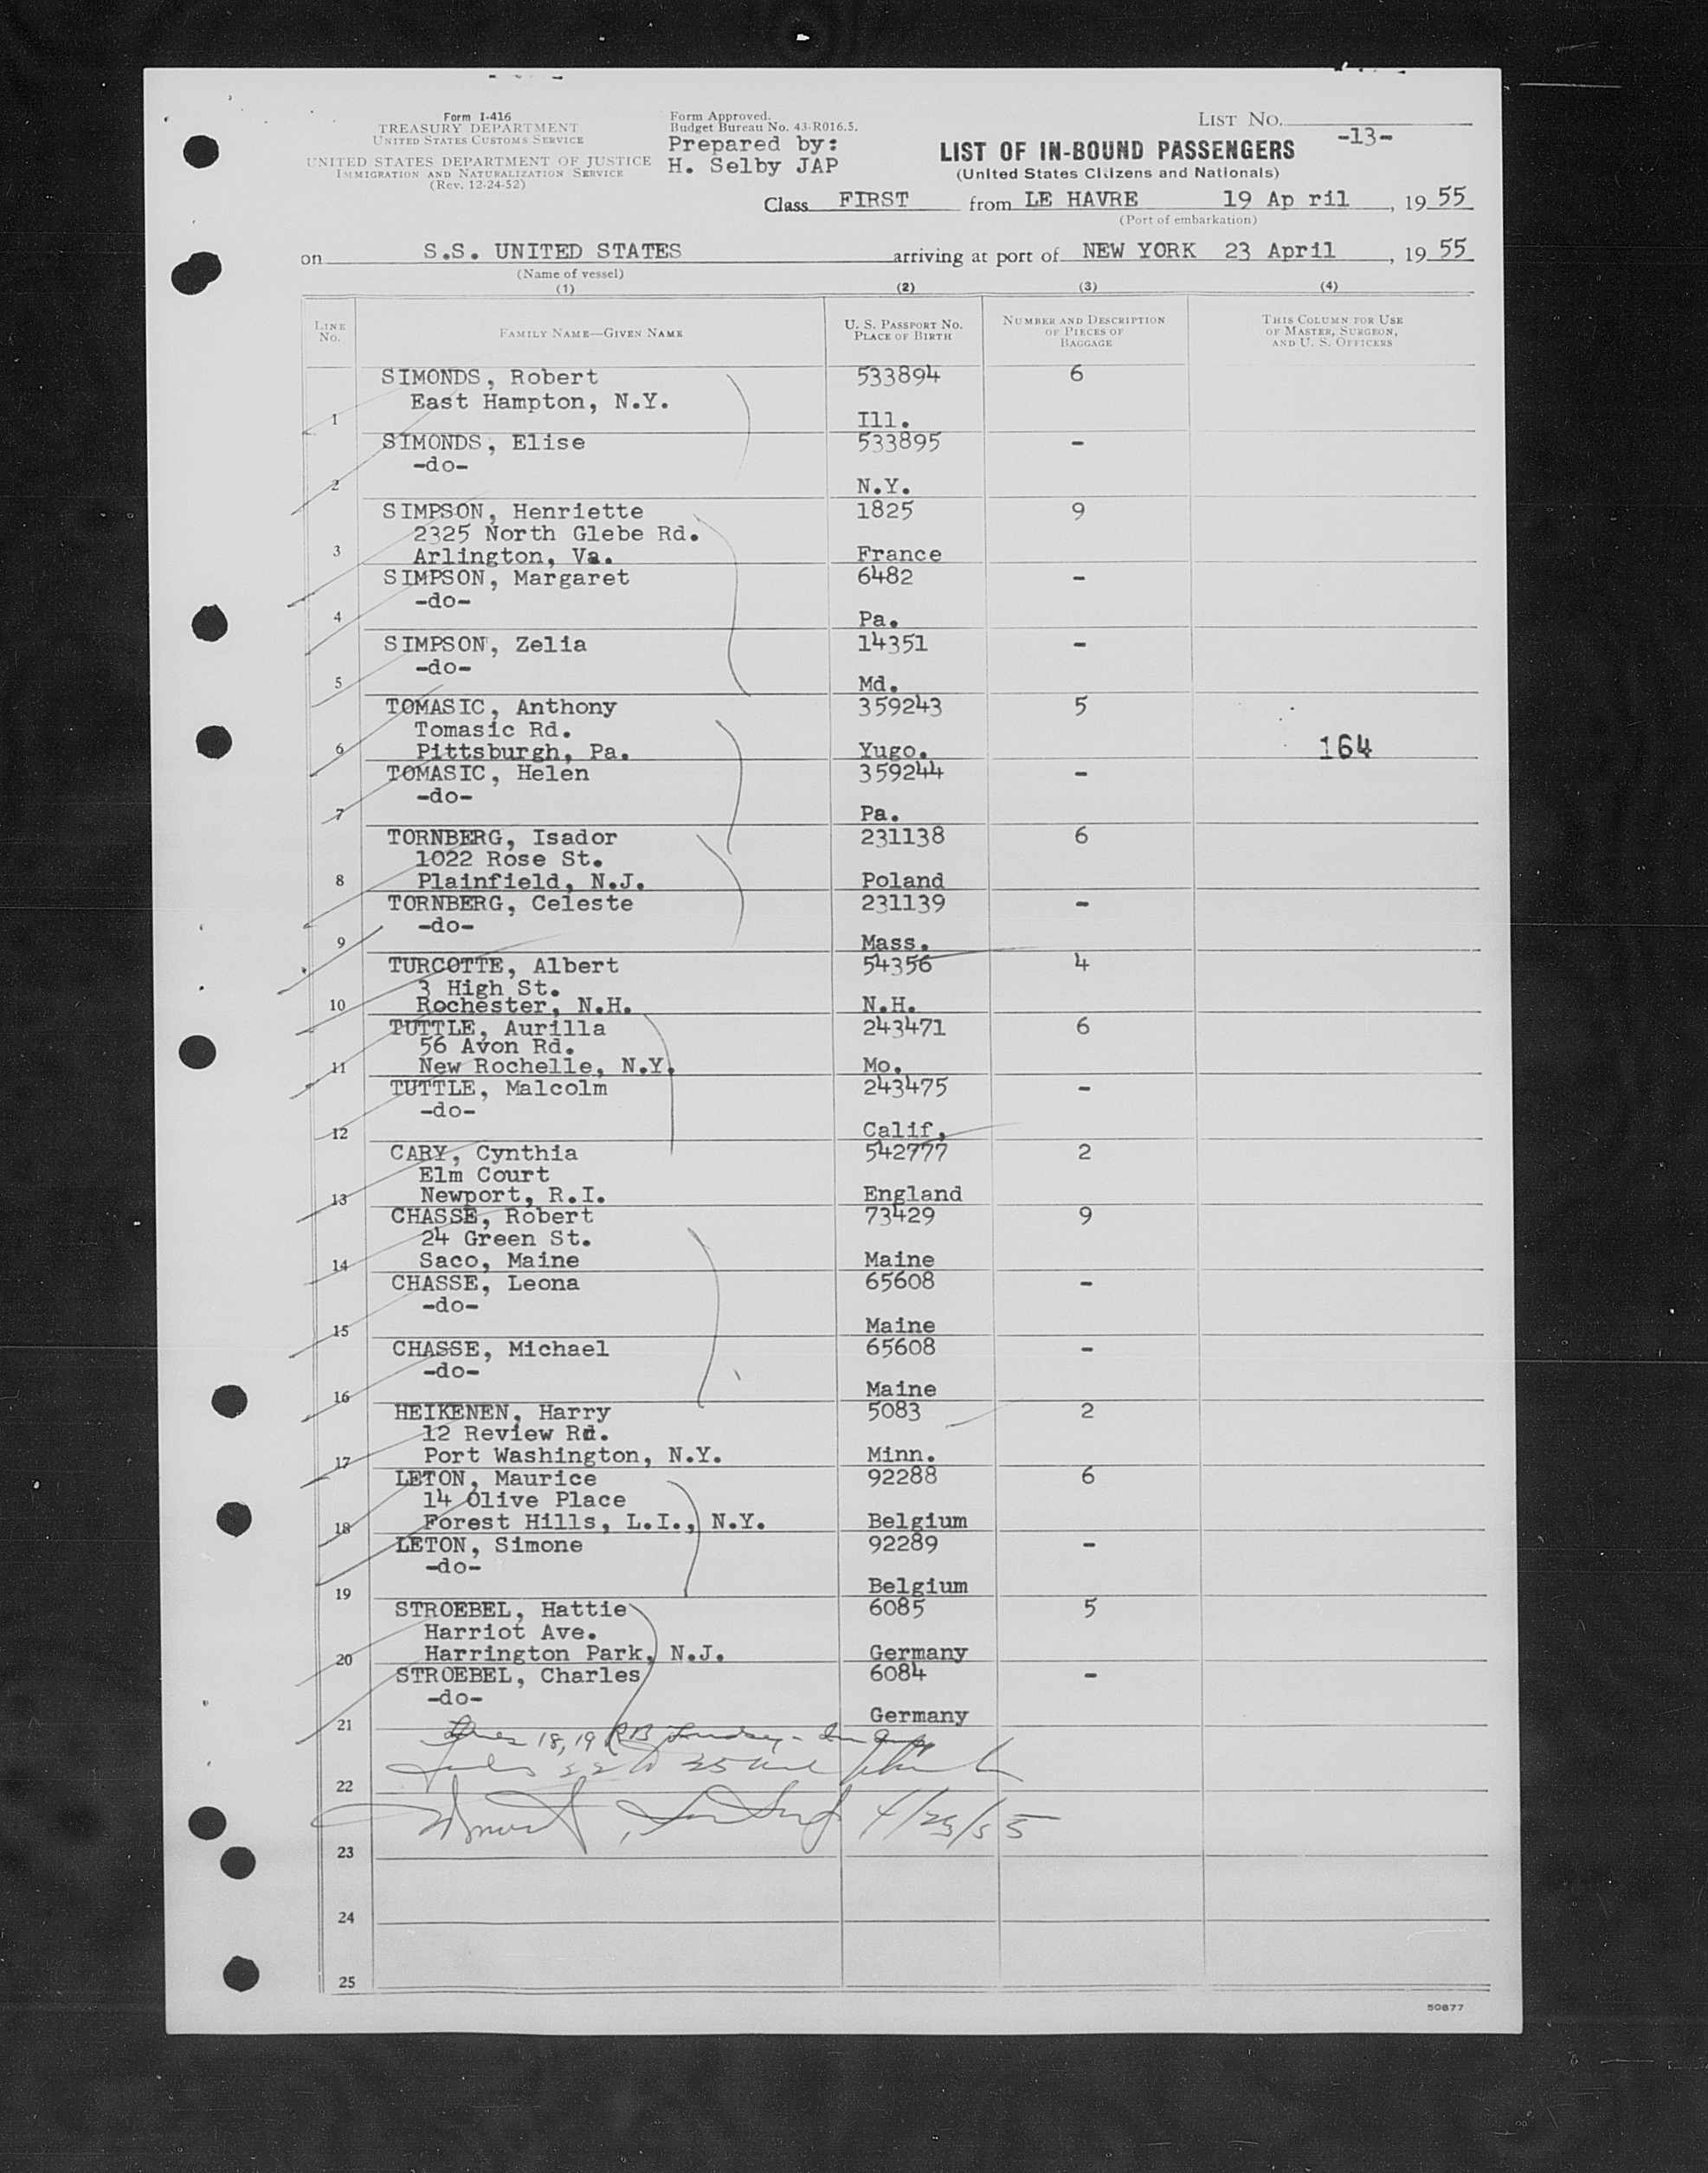 Form I-416
TREASURY DEPARTMENT
UNITED STATES CUSTOMS SERVICE
UNITED STATES DEPARTMENT OF JUSTICE
IMMIGRATION AND NATURALIZATION SERVICE
(Rev. 12-24-52)
Form Approved.
Budget Bureau No. 43-R016.5.
Prepared by:
H. Selby JAP
LIST NO.
-13-
LIST OF IN-BOUND PASSENGERS
(United States Citizens and Nationals)
Class FIRST from LE HAVRE 19 Ap ril, 19 55
(Port of embarkation)
on S.S. UNITED STATES arriving at port of NEW YORK 23 April, 19 55
(Name of vessel)
(1) (2) (3) (4)
LINE NO. FAMILY NAME—GIVEN NAME U. S. PASSPORT NO. PLACE OF BIRTH NUMBER AND DESCRIPTION OF PIECES OF BAGGAGE THIS COLUMN FOR USE OF MASTER, SURGEON, AND U. S. OFFICERS
SIMONDS, Robert 533894 6
East Hampton, N.Y.
1 Ill.
SIMONDS, Elise 533895 -
-do-
2 N.Y.
SIMPSON, Henriette 1825 9
2325 North Glebe Rd.
3 Arlington, Va. France
SIMPSON, Margaret 6482 -
-do-
4 Pa.
SIMPSON, Zelia 14351 -
-do-
5 Md.
TOMASIC, Anthony 359243 5
Tomasic Rd.
6 Pittsburgh, Pa. Yugo. 164
TOMASIC, Helen 359244 -
-do-
7 Pa.
TORNBERG, Isador 231138 6
1022 Rose St.
8 Plainfield, N.J. Poland
TORNBERG, Celeste 231139 -
-do-
9 Mass.
TURCOTTE, Albert 54356 4
3 High St.
10 Rochester, N.H. N.H.
TUTTLE, Aurilla 243471 6
56 Avon Rd.
11 New Rochelle, N.Y. Mo.
TUTTLE, Malcolm 243475 -
-do-
12 Calif.
CARY, Cynthia 542777 2
Elm Court
13 Newport, R.I. England
CHASSE, Robert 73429 9
24 Green St.
14 Saco, Maine Maine
CHASSE, Leona 65608 -
-do-
15 Maine
CHASSE, Michael 65608 -
-do-
16 Maine
HEIKENEN, Harry 5083 2
12 Review Rd.
17 Port Washington, N.Y. Minn.
LETON, Maurice 92288 6
14 Olive Place
18 Forest Hills, L.I., N.Y. Belgium
LETON, Simone 92289 -
-do-
19 Belgium
STROEBEL, Hattie 6085 5
Harriot Ave.
20 Harrington Park, N.J. Germany
STROEBEL, Charles 6084 -
-do-
21 Germany
18, 19
22
4/23/55
23
24
25
50877